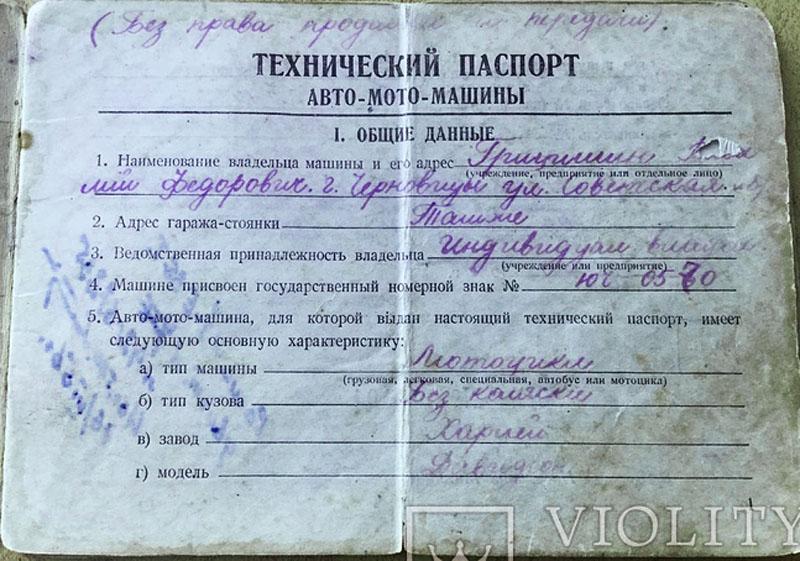 (Без права продажи и передачи)
ТЕХНИЧЕСКИЙ ПАСПОРТ
АВТО-МОТО-МАШИНЫ
I. ОБЩИЕ ДАННЫЕ
1. Наименование владельца машины и его адрес
(учреждение, предприятие или отдельное лицо)
Федорович. г. Черновицы ул. Советская
2. Адрес гаража-стоянки
3. Ведомственная принадлежность владельца Индивидуал
(учреждение или предприятие)
4. Машине присвоен государственный номерной знак №
5. Авто-мото-машина, для которой выдан настоящий технический паспорт, имеет
следующую основную характеристику:
а) тип машины Мотоцикл
(грузовая, легковая, специальная, автобус или мотоцикл)
б) тип кузова Без коляски
в) завод Харлей
г) модель Давидсон
VIOLITY